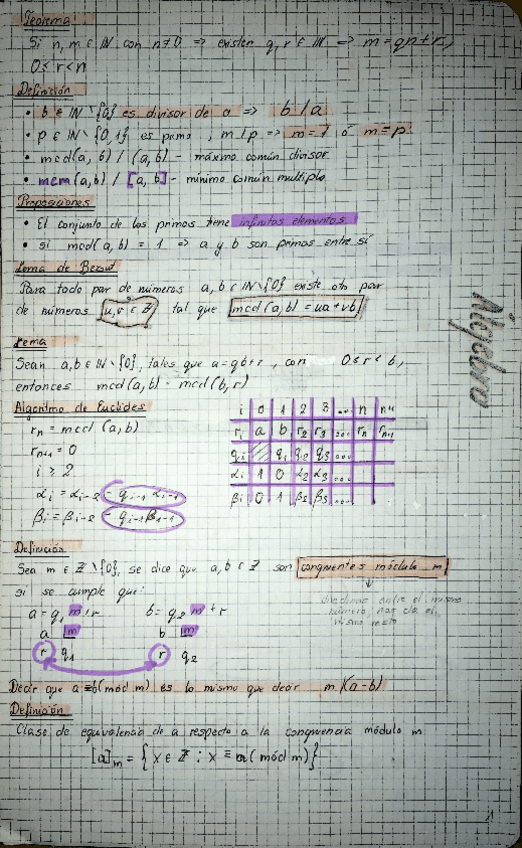 Teorema:
Si n, m ∈ ℕ con n≠0 => existen q, r ∈ ℕ => m = qp + r,
0 ≤ r < n
Definición
• b ∈ ℕ \ {0} es divisor de a => b / a
• p ∈ ℕ \ {0,1} es primo, m / p => m = 1 ó m = p
• mcd(a, b) / (a, b) - máximo común divisor
• mcm (a,b) / [a, b] - mínimo común multiplo
Proposiciones
• El conjunto de los primos tiene infinitos elementos
• si mcd(a, b) = 1 => a y b son primos entre sí
Lema de Bezout
Para todo par de números a, b ∈ ℕ \ {0} existe otro par
de números u, v ∈ ℤ tal que mcd (a, b) = ua + vb
Lema
Sean a, b ∈ ℕ \ {0}, tales que a = qb + r, con 0 ≤ r < b,
entonces mcd (a, b) = mcd (b, r)
Álgebra
Algoritmo de Euclides
rₙ = mcd (a, b)
rₙ₊₁ = 0
i ≥ 2
αᵢ = αᵢ₋₂ - qᵢ₋₁ αᵢ₋₁
βᵢ = βᵢ₋₂ - qᵢ₋₁ βᵢ₋₁
i 0 1 2 3 ... n n+1
rᵢ a b r₂ r₃ ... rₙ rₙ₊₁
qᵢ q₁ q₂ q₃ ...
αᵢ 1 0 α₂ α₃ ...
βᵢ 0 1 β₂ β₃ ...
Definición
Sea m ∈ ℤ \ {0}, se dice que a, b ∈ ℤ son congruentes módulo m
si se cumple que:
dividirlos entre el mismo
número nos da el
mismo resto
a = q₁ m + r b = q₂ m + r
a m b m
r q₁ r q₂
Decir que a ≡ b (mód m) es lo mismo que decir m / (a-b)
Definición
Clase de equivalencia de a respecto a la congruencia módulo m
[a]ₘ = { x ∈ ℤ ; x ≡ a (mód m) }
1